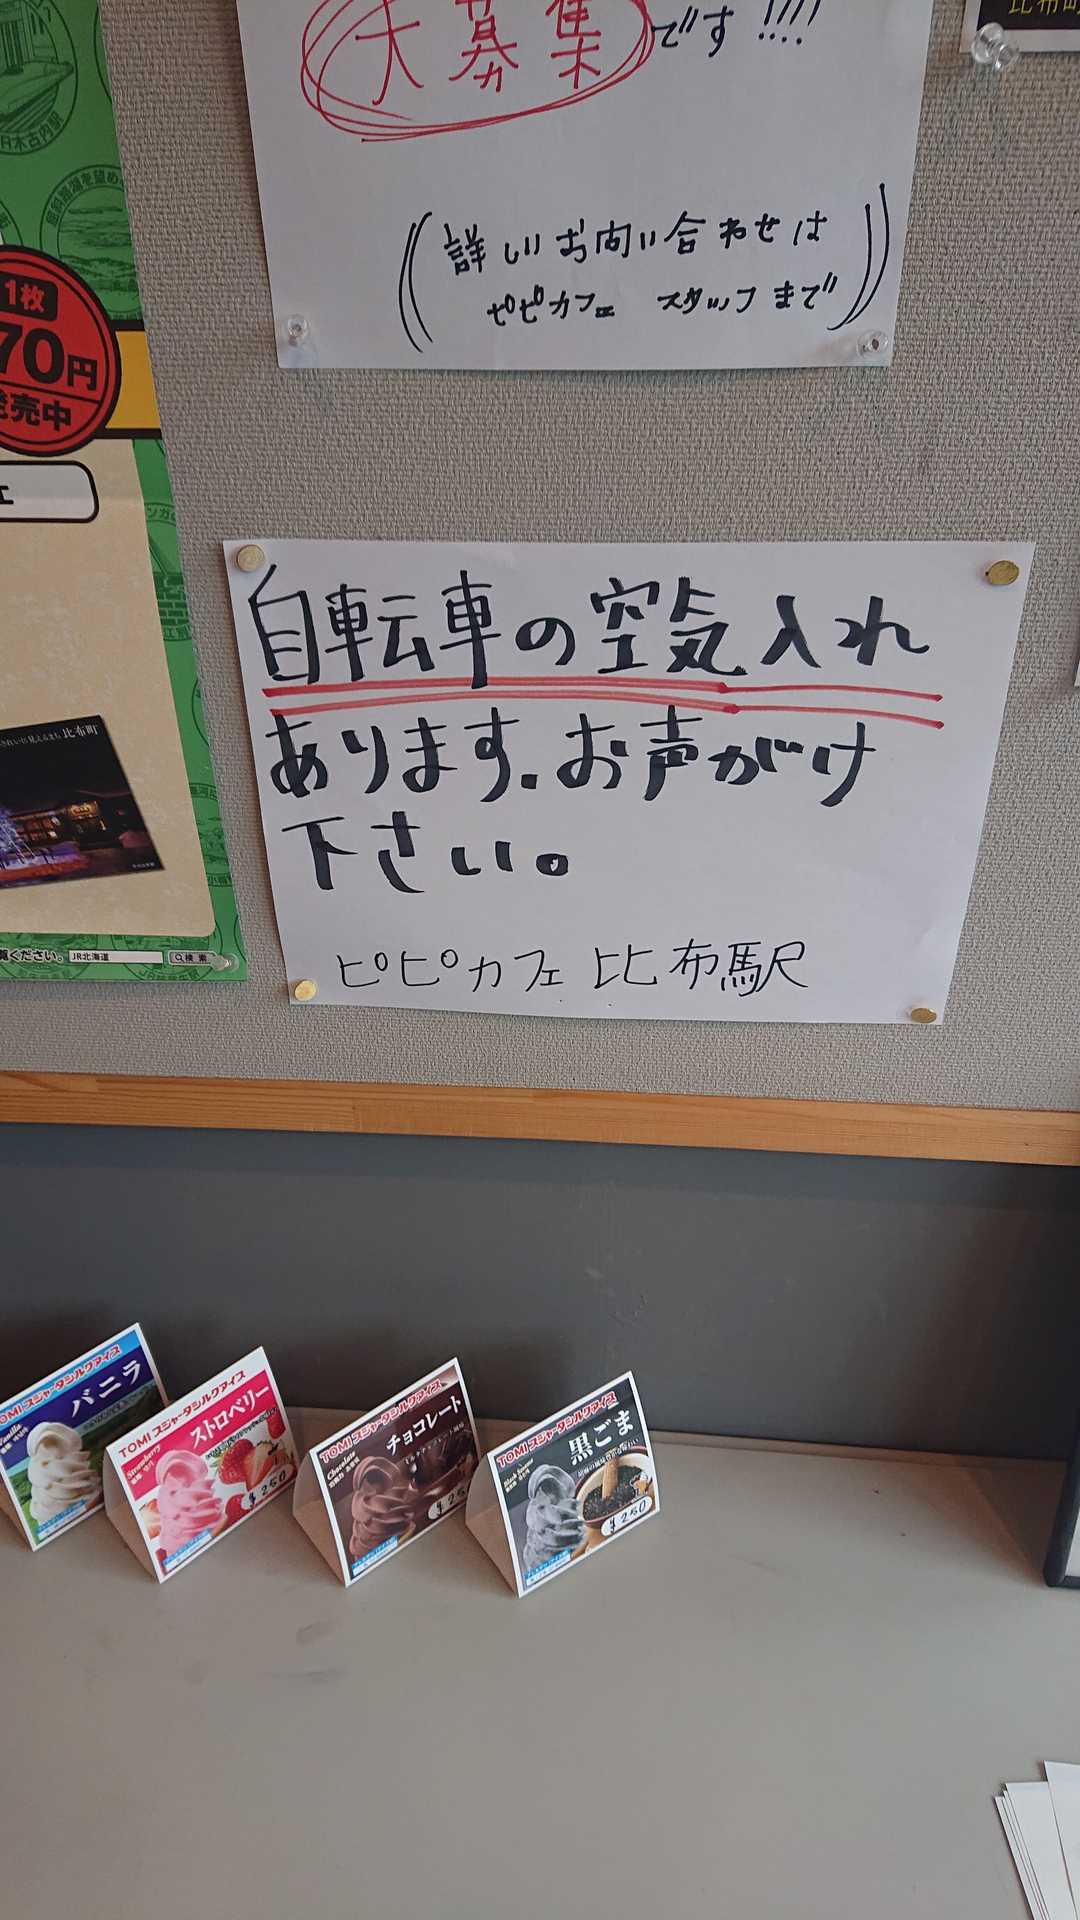 大募集です!!!!
詳しいお問い合わせは
ピピカフェ スタッフまで
比布町
1枚
70円
発売中
JR木古内駅
比布町
覧ください。
JR北海道
検索
自転車の空気入れ
あります。お声がけ
下さい。
ピピカフェ 比布駅
TOMI スジャータシルクアイス
バニラ
Vanilla
TOMI スジャータシルクアイス
ストロベリー
Strawberry
¥250
TOMI スジャータシルクアイス
チョコレート
Chocolate
¥250
TOMI スジャータシルクアイス
黒ごま
Black Sesame
¥250